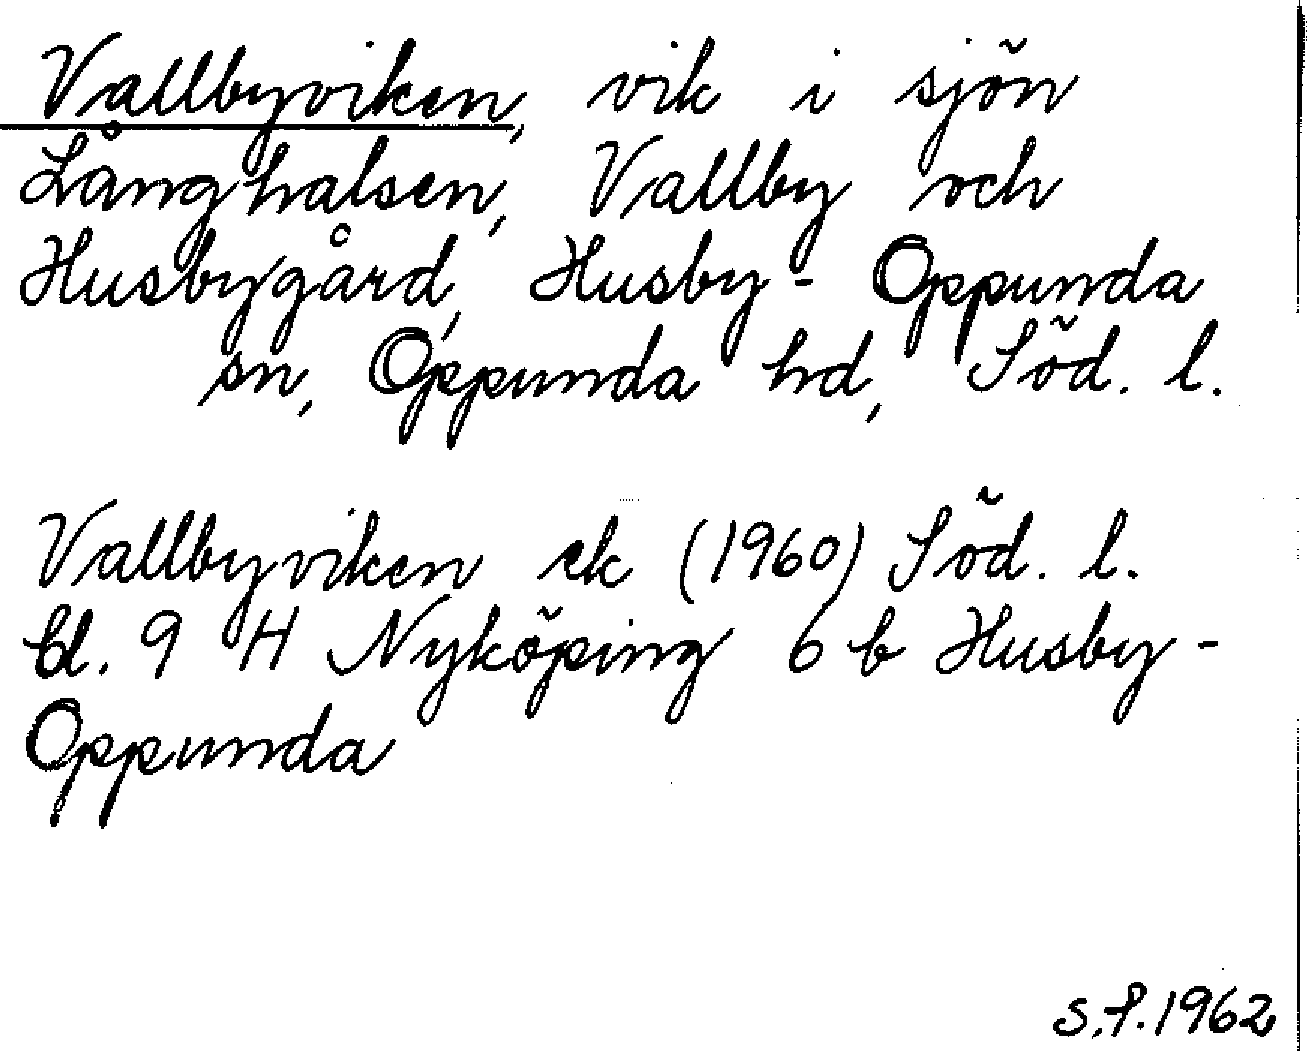 Vallbyviken, vik i sjön
Långhalsen, Vallby och
Husbygård, Husby-Oppunda
sn, Oppunda hd, Söd. l.
Vallbyviken ek (1960) Söd. l.
bl. 9 H Nyköping 6 b Husby-
Oppunda
S.P. 1962